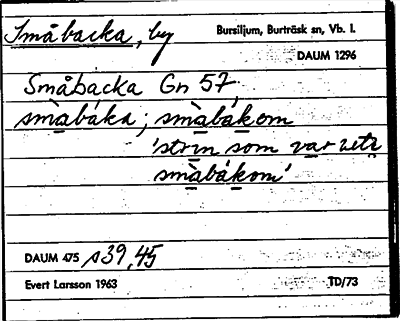 Småbacka, by Bursiljum, Burträsk sn, Vb. l.
DAUM 1296
Småbacka Gn 57
smàbáka; smàbákom
som var
smàbákom'
DAUM 475 s 39, 45
Evert Larsson 1963 TD/73